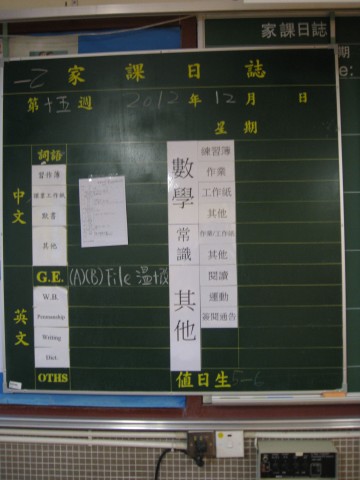 家課日誌
一乙 家課日誌
第十五週 2012年12月 日
星期
中文
詞語
習作簿
其他
G.E. (A)(B) File 溫
英文
W.H.
Penmanship
Writing
Dict.
OTHS
數學
練習簿
作業
工作紙
其他
常識
作業/工作紙
其他
其他
閱讀
運動
簽閱通告
值日生 5-6